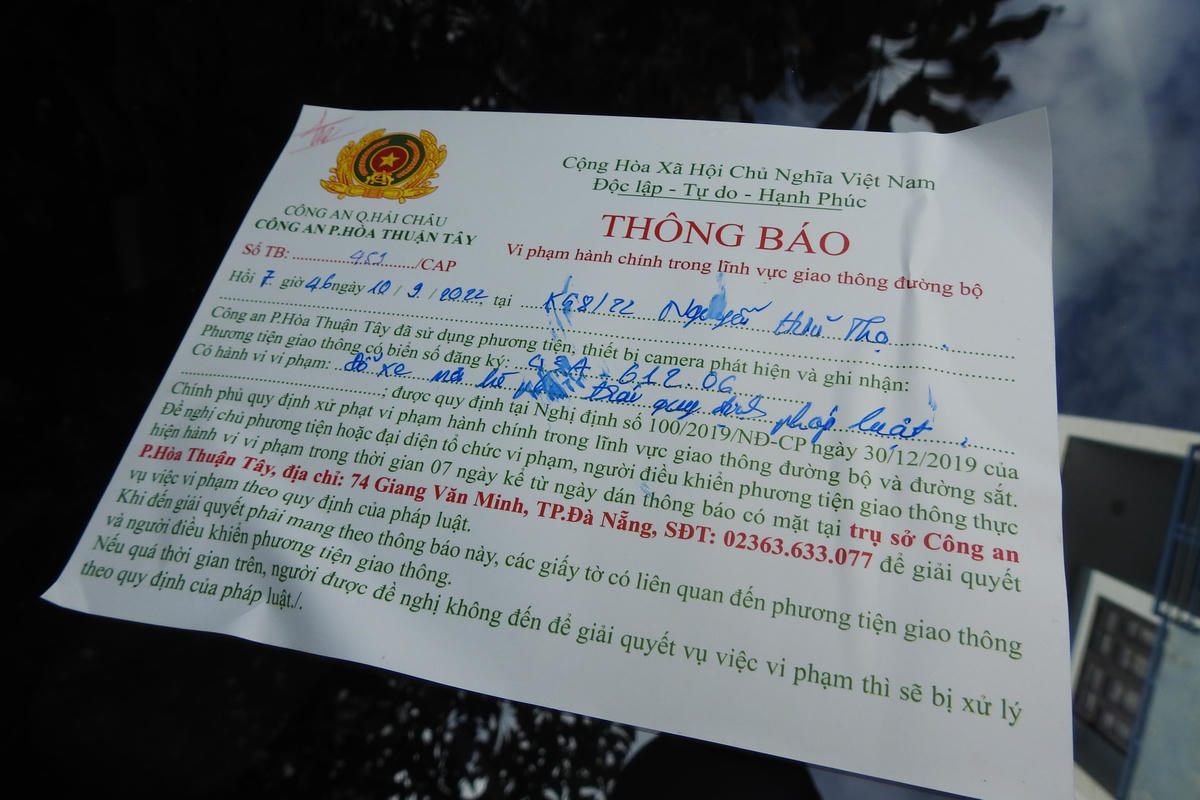 Cộng Hòa Xã Hội Chủ Nghĩa Việt Nam
Độc lập - Tự do - Hạnh Phúc
CÔNG AN Q.HẢI CHÂU
CÔNG AN P.HÒA THUẬN TÂY
THÔNG BÁO
Vi phạm hành chính trong lĩnh vực giao thông đường bộ
Số TB: 451 /CAP
Hồi 7 giờ 46 ngày 10 / 9 / 2022 tại K98/22 Nguyễn Hữu Thọ
Công an P.Hòa Thuận Tây đã sử dụng phương tiện, thiết bị camera phát hiện và ghi nhận:
Phương tiện giao thông có biển số đăng ký: 612.06
Có hành vi vi phạm: Đỗ xe trái quy định pháp luật
, được quy định tại Nghị định số 100/2019/NĐ-CP ngày 30/12/2019 của
Chính phủ quy định xử phạt vi phạm hành chính trong lĩnh vực giao thông đường bộ và đường sắt.
Đề nghị chủ phương tiện hoặc đại diện tổ chức vi phạm, người điều khiển phương tiện giao thông thực
hiện hành vi vi phạm trong thời gian 07 ngày kể từ ngày dán thông báo có mặt tại trụ sở Công an
P.Hòa Thuận Tây, địa chỉ: 74 Giang Văn Minh, TP.Đà Nẵng, SĐT: 02363.633.077 để giải quyết
vụ việc vi phạm theo quy định của pháp luật.
Khi đến giải quyết phải mang theo thông báo này, các giấy tờ có liên quan đến phương tiện giao thông
và người điều khiển phương tiện giao thông.
Nếu quá thời gian trên, người được đề nghị không đến để giải quyết vụ việc vi phạm thì sẽ bị xử lý
theo quy định của pháp luật./.